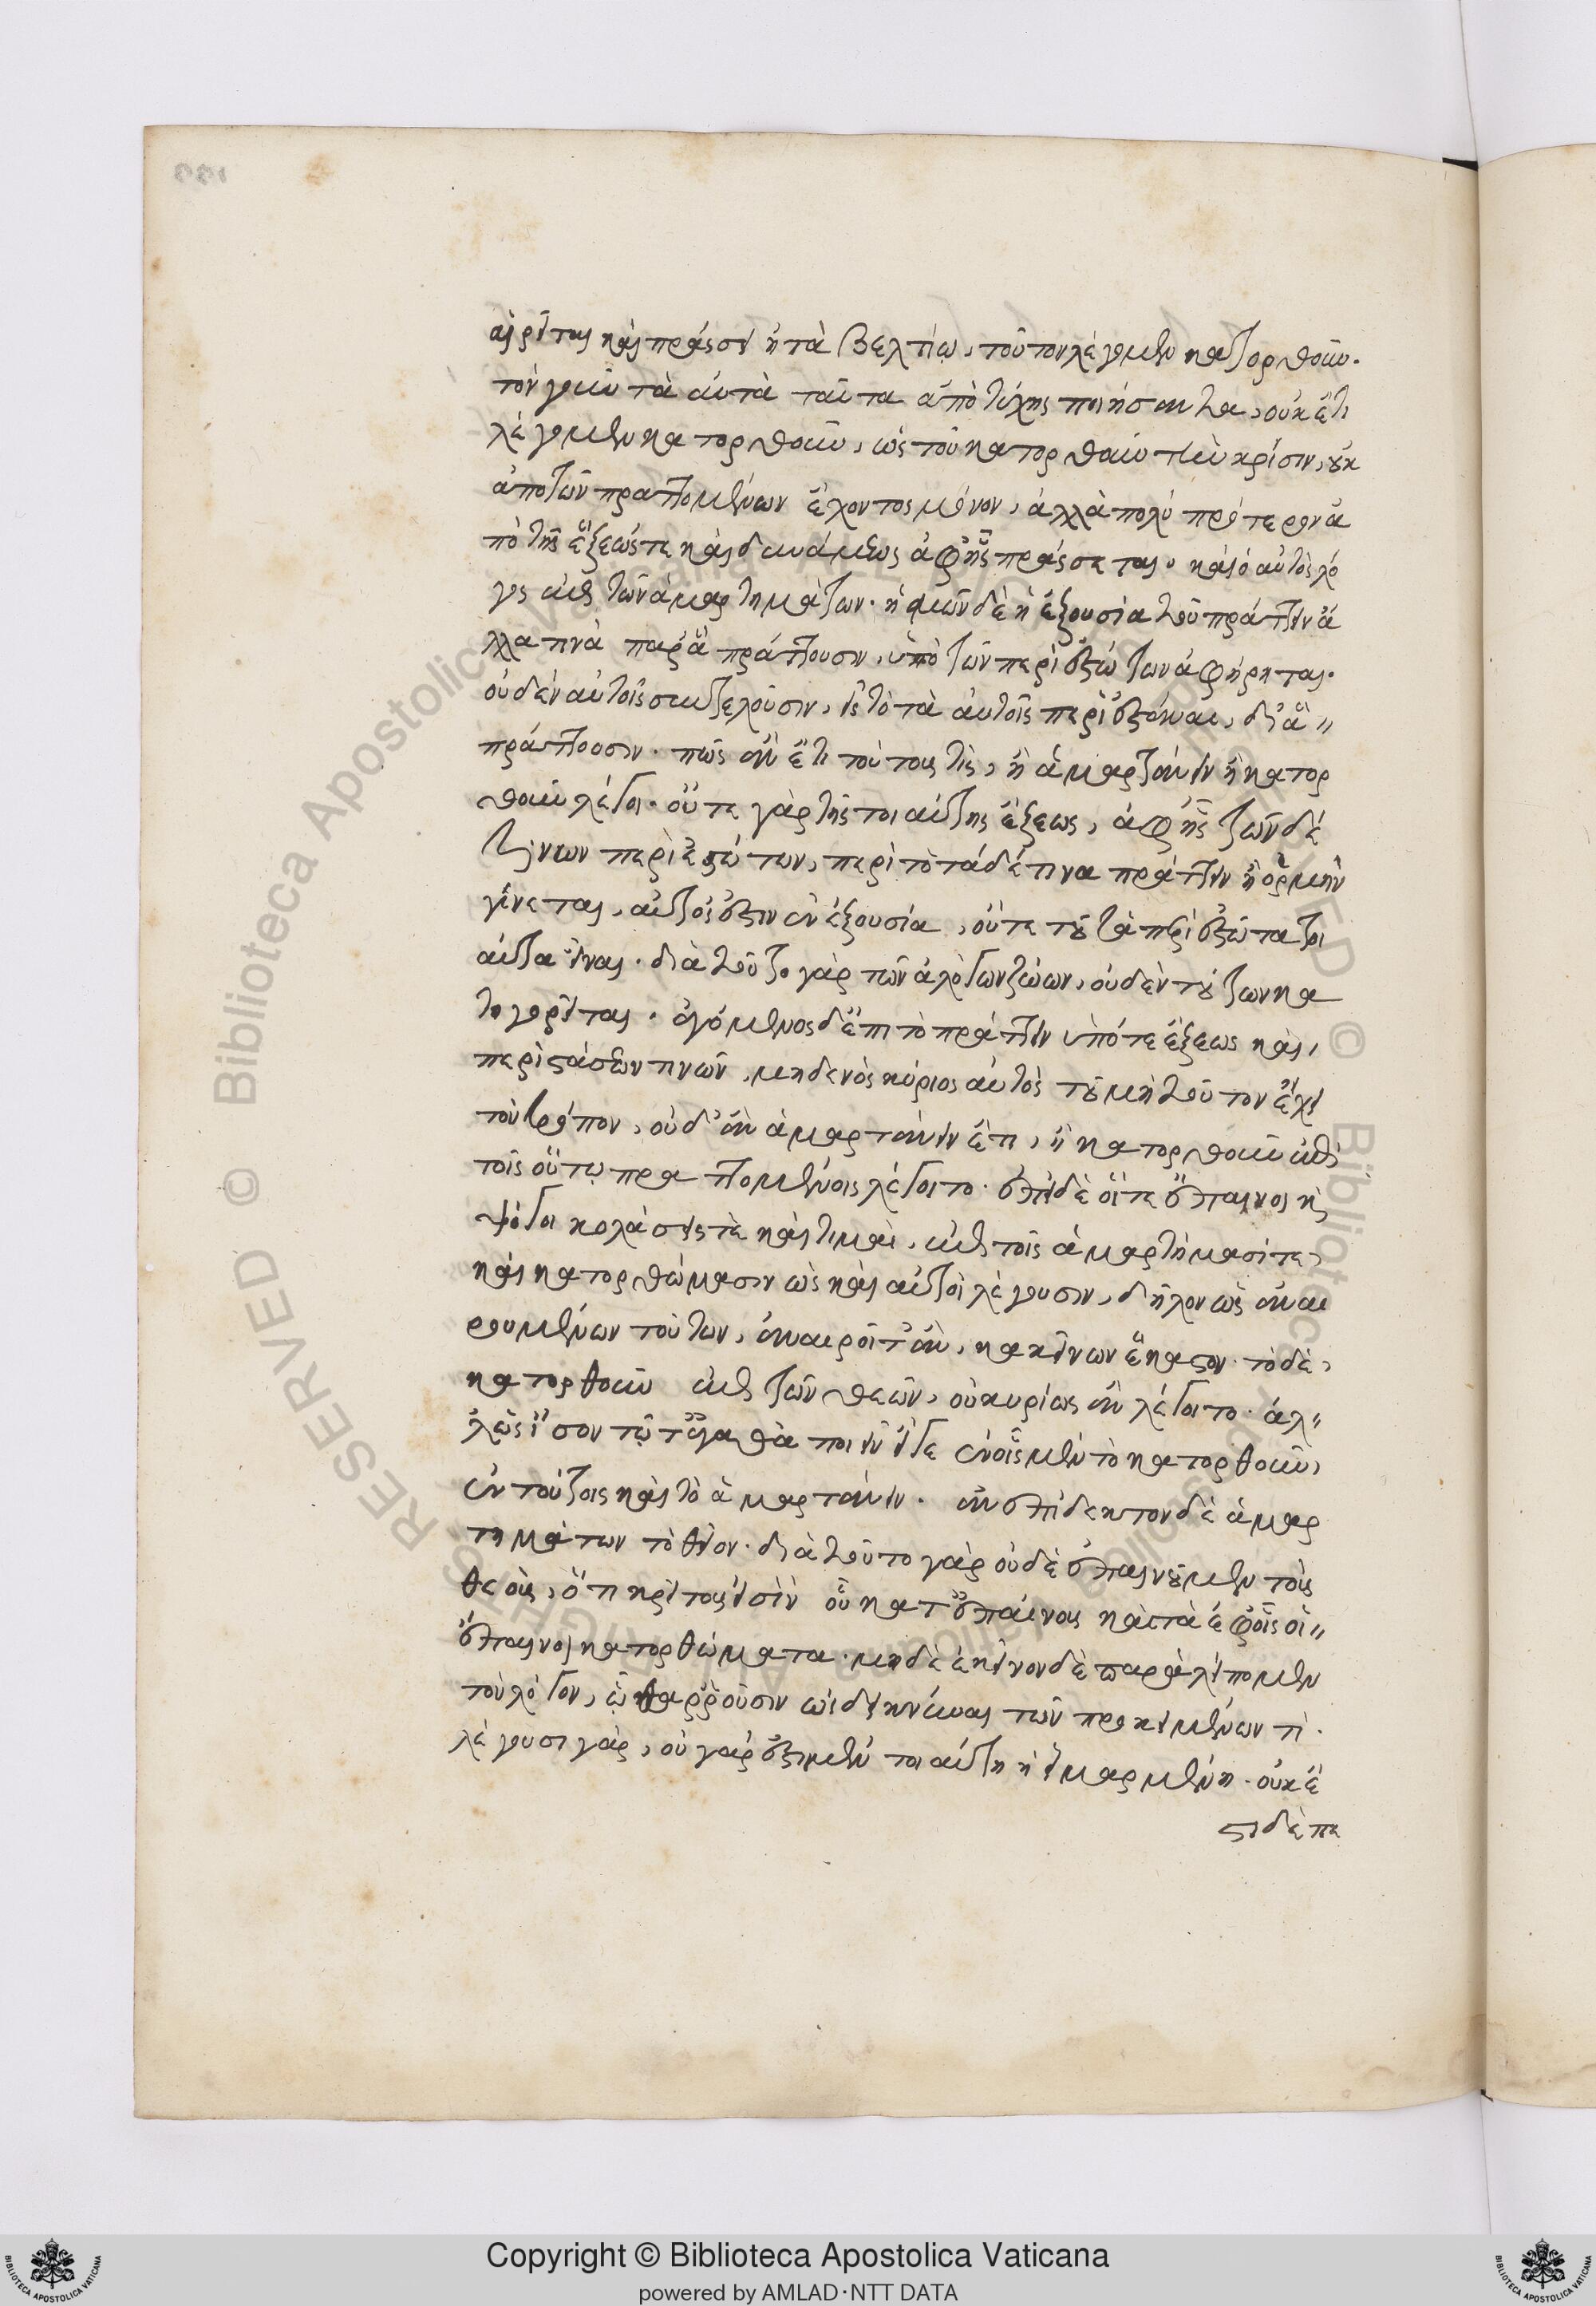 αἱρεῖται καὶ πράσσει ἢ τὰ βελτίω, τοῦτον λέγομεν κατορθοῦν.
τὸν γοῦν τὰ αὐτὰ ταῦτα ἀπὸ τύχης ποιήσαντα, οὐκέτι
λέγομεν κατορθοῦν, ὡς τοῦ κατορθοῦν τὴν κρίσιν, οὐκ
ἀπὸ τῶν πραττομένων ἔχοντος μόνον, ἀλλὰ πολὺ πρότερον ἀ
πὸ τῆς ἕξεώς τε καὶ δυνάμεως ἀφ' ἧς πράσσεται. καὶ ὁ αὐτὸς λό
γος ἐπὶ τῶν ἁμαρτημάτων. ἡμῶν δὲ ἡ ἐξουσία τοῦ πράττειν ἄ
λλα τινὰ παρ' ἃ πράττουσιν, ὑπὸ τῶν περιεστώτων ἀφῄρηται.
οὐδὲν αὐτοῖς συντελοῦσιν, εἰς τὸ τὰ αὐτοῖς περιεστάναι, δι' ἃ
πράττουσιν. πῶς ἂν ἔτι τούτους τίς, ἢ ἁμαρτάνειν ἢ κατορ
θοῦν λέγοι. οὔτε γὰρ τῆς τοιαύτης ἕξεως, ἀφ' ἧς τῶνδέ
τινων περιεστώτων, περὶ τὸ τάδέ τινα πράττειν ἡ ὁρμὴ
γίνεται, αὐτοῖς ἐστιν ἐν ἐξουσία, οὔτε τοῦ τὰ περιεστῶτα τοι
αῦτα εἶναι. διὰ τοῦτο γὰρ τῶν ἀλόγων ζώων, οὐδὲν τούτων κα
τηγορεῖται. ἀγόμενος δ' ἐπὶ τὸ πράττειν ὑπό τε ἕξεως καὶ
περιστάσεών τινων, μηδενὸς κύριος αὐτὸς τοῦ μὴ τοῦτον ἔχει
τὸν τρόπον, οὐδ' ἂν ἁμαρτάνειν ἔτι, ἢ κατορθοῦν ἐπὶ
τοῖς οὕτω πραττομένοις λέγοιτο. ἐπεὶ δὲ οἵ τε ἔπαινοι κ
ψόγοι κολάσεις τε καὶ τιμαὶ, ἐπὶ τοῖς ἁμαρτήμασί τε
καὶ κατορθώμασιν ὡς καὶ αὐτοὶ λέγουσιν, δῆλον ὡς ἀναι
ρουμένων τούτων, ἀναιροῖτ' ἂν, κακείνων ἕκαστον. τὸ δὲ
κατορθοῦν ἐπὶ τῶν θεῶν, οὐ κυρίως ἂν λέγοιτο. ἀλ
λ' ὡς ἴσον τῷ τἀγαθὰ ποιεῖν εἴ γε ἐν οἷς μὲν τὸ κατορθοῦν,
ἐν τούτοις καὶ τὸ ἁμαρτάνειν. ἀνεπίδεκτον δὲ ἁμαρ
τημάτων τὸ θεῖον. διὰ τοῦτο γὰρ οὐδὲ ἐπαινοῦμεν τοὺς
θεοὺς, ὅτι κρείττους εἰσὶν ἢ κατ' ἐπαίνους καὶ τὰ ἐφ' οἷς οἱ
ἔπαινοι κατορθώματα. μηδὲ ἐκεῖνον δὲ παραλείπομεν
τὸν λόγον, ᾧ θαρροῦσιν ὡς δεικνύναι τῶν προκειμένων τί.
λέγουσι γάρ, οὐ γάρ ἐστι μὲν τοιαύτη ἡ εἱμαρμένη. οὐκ ἔ
στι δὲ πε